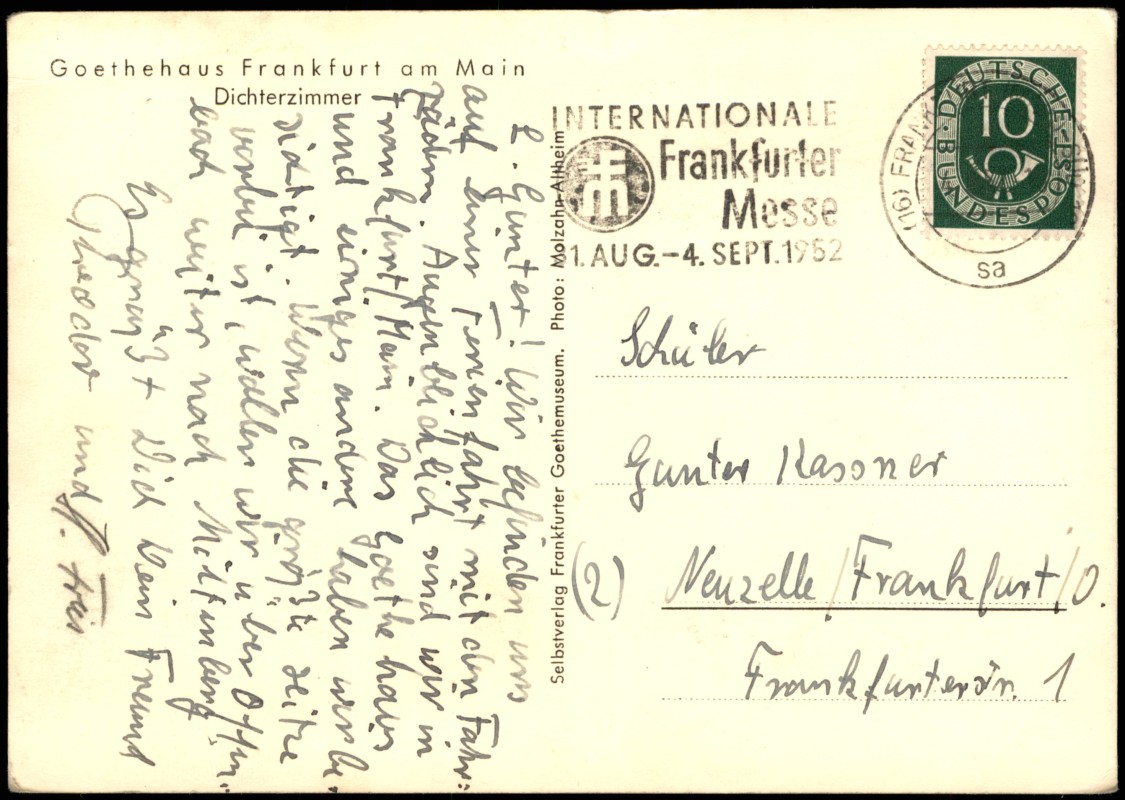 Goethehaus Frankfurt am Main
Dichterzimmer
L. Günter! Wir befinden uns
auf einer Ferienfahrt mit den Fahr=
rädern. Augenblicklich sind wir in
Frankfurt/Main. Das Goethehaus
und einiges andere haben wir be
sichtigt. Wenn die größte Hitze
vorbei ist, wollen wir über Offen-
bach weiter nach Miltenberg
Es grüßt Dich Dein Freund
Theodor und
Selbstverlag Frankfurter Goethemuseum. Photo: Molzahn-Altheim
INTERNATIONALE
Frankfurter
Messe
31.AUG.-4. SEPT.1952
(16) FRANKF
sa
DEUTSCHE BUNDESPOST
10
Schüler
Günter Kassner
(2) Neuzelle/Frankfurt/O.
Frankfurterstr. 1